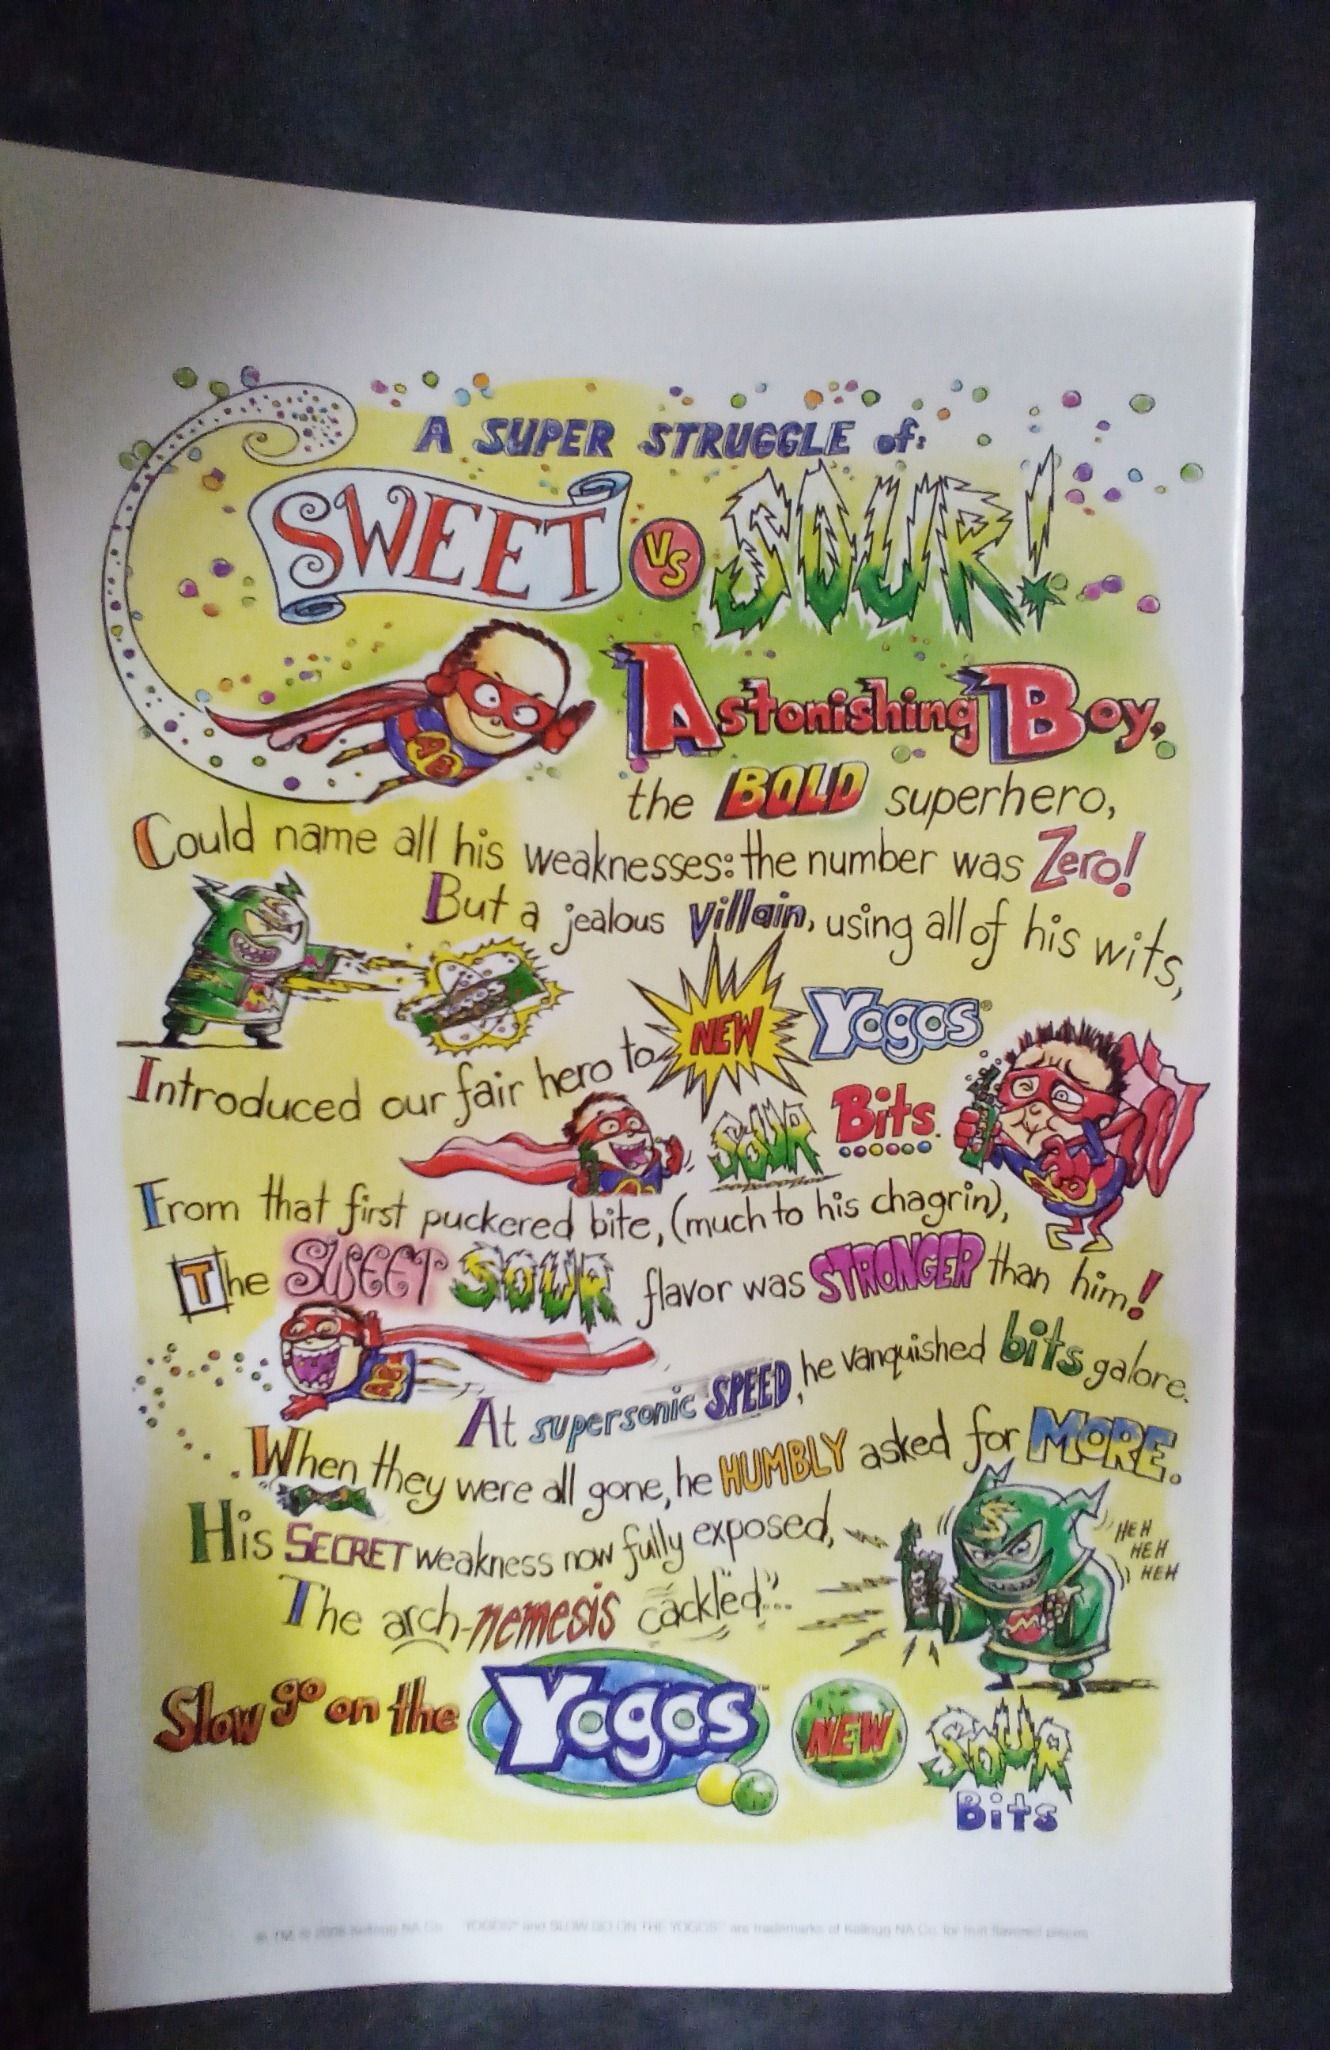 A SUPER STRUGGLE of:
SWEET VS SOUR!
Astonishing Boy,
the BOLD superhero,
Could name all his weaknesses: the number was Zero!
But a jealous Villain, using all of his wits,
Introduced our fair hero to NEW Yogos®
SOUR Bits.
From that first puckered bite, (much to his chagrin),
The SWEET SOUR flavor was STRONGER than him!
At supersonic SPEED, he vanquished bits galore.
When they were all gone, he HUMBLY asked for MORE.
His SECRET weakness now fully exposed,
The arch-nemesis cackled...
HEH
HEH
HEH
Slow go on the Yogos™ NEW SOUR
Bits
®, TM, © Kellogg NA Co. YOGOS™ and SLOW GO ON THE YOGOS™ are trademarks of Kellogg NA Co. for fruit flavored pieces